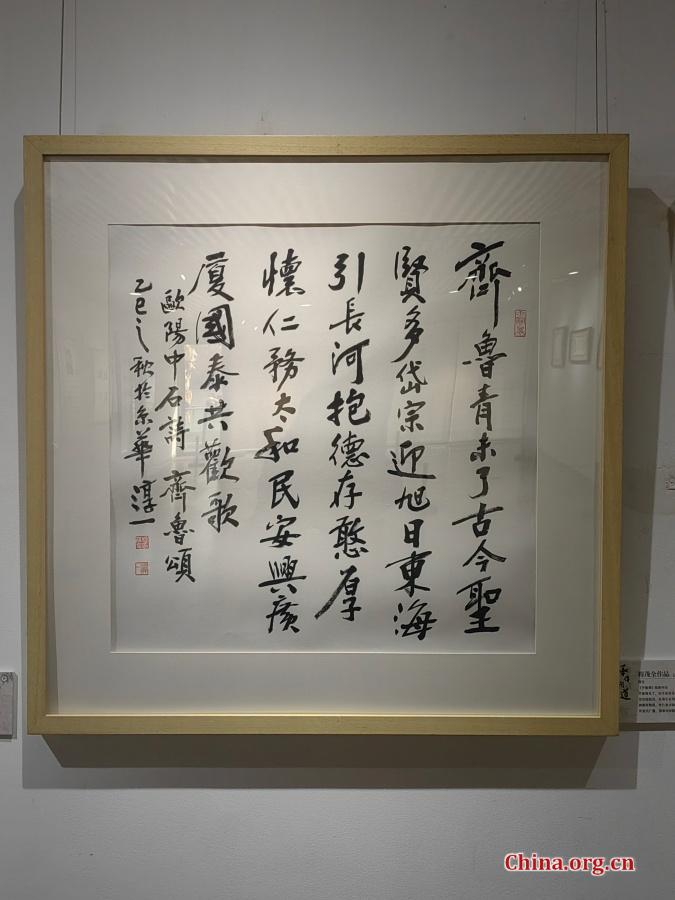 齊魯青未了古今聖
賢多岱宗迎旭日東海
引長河抱德存憨厚
懷仁務太和民安興廣
廈國泰共歡歌
歐陽中石詩 齊魯頌
乙巳之秋於京華 淳一
China.org.cn